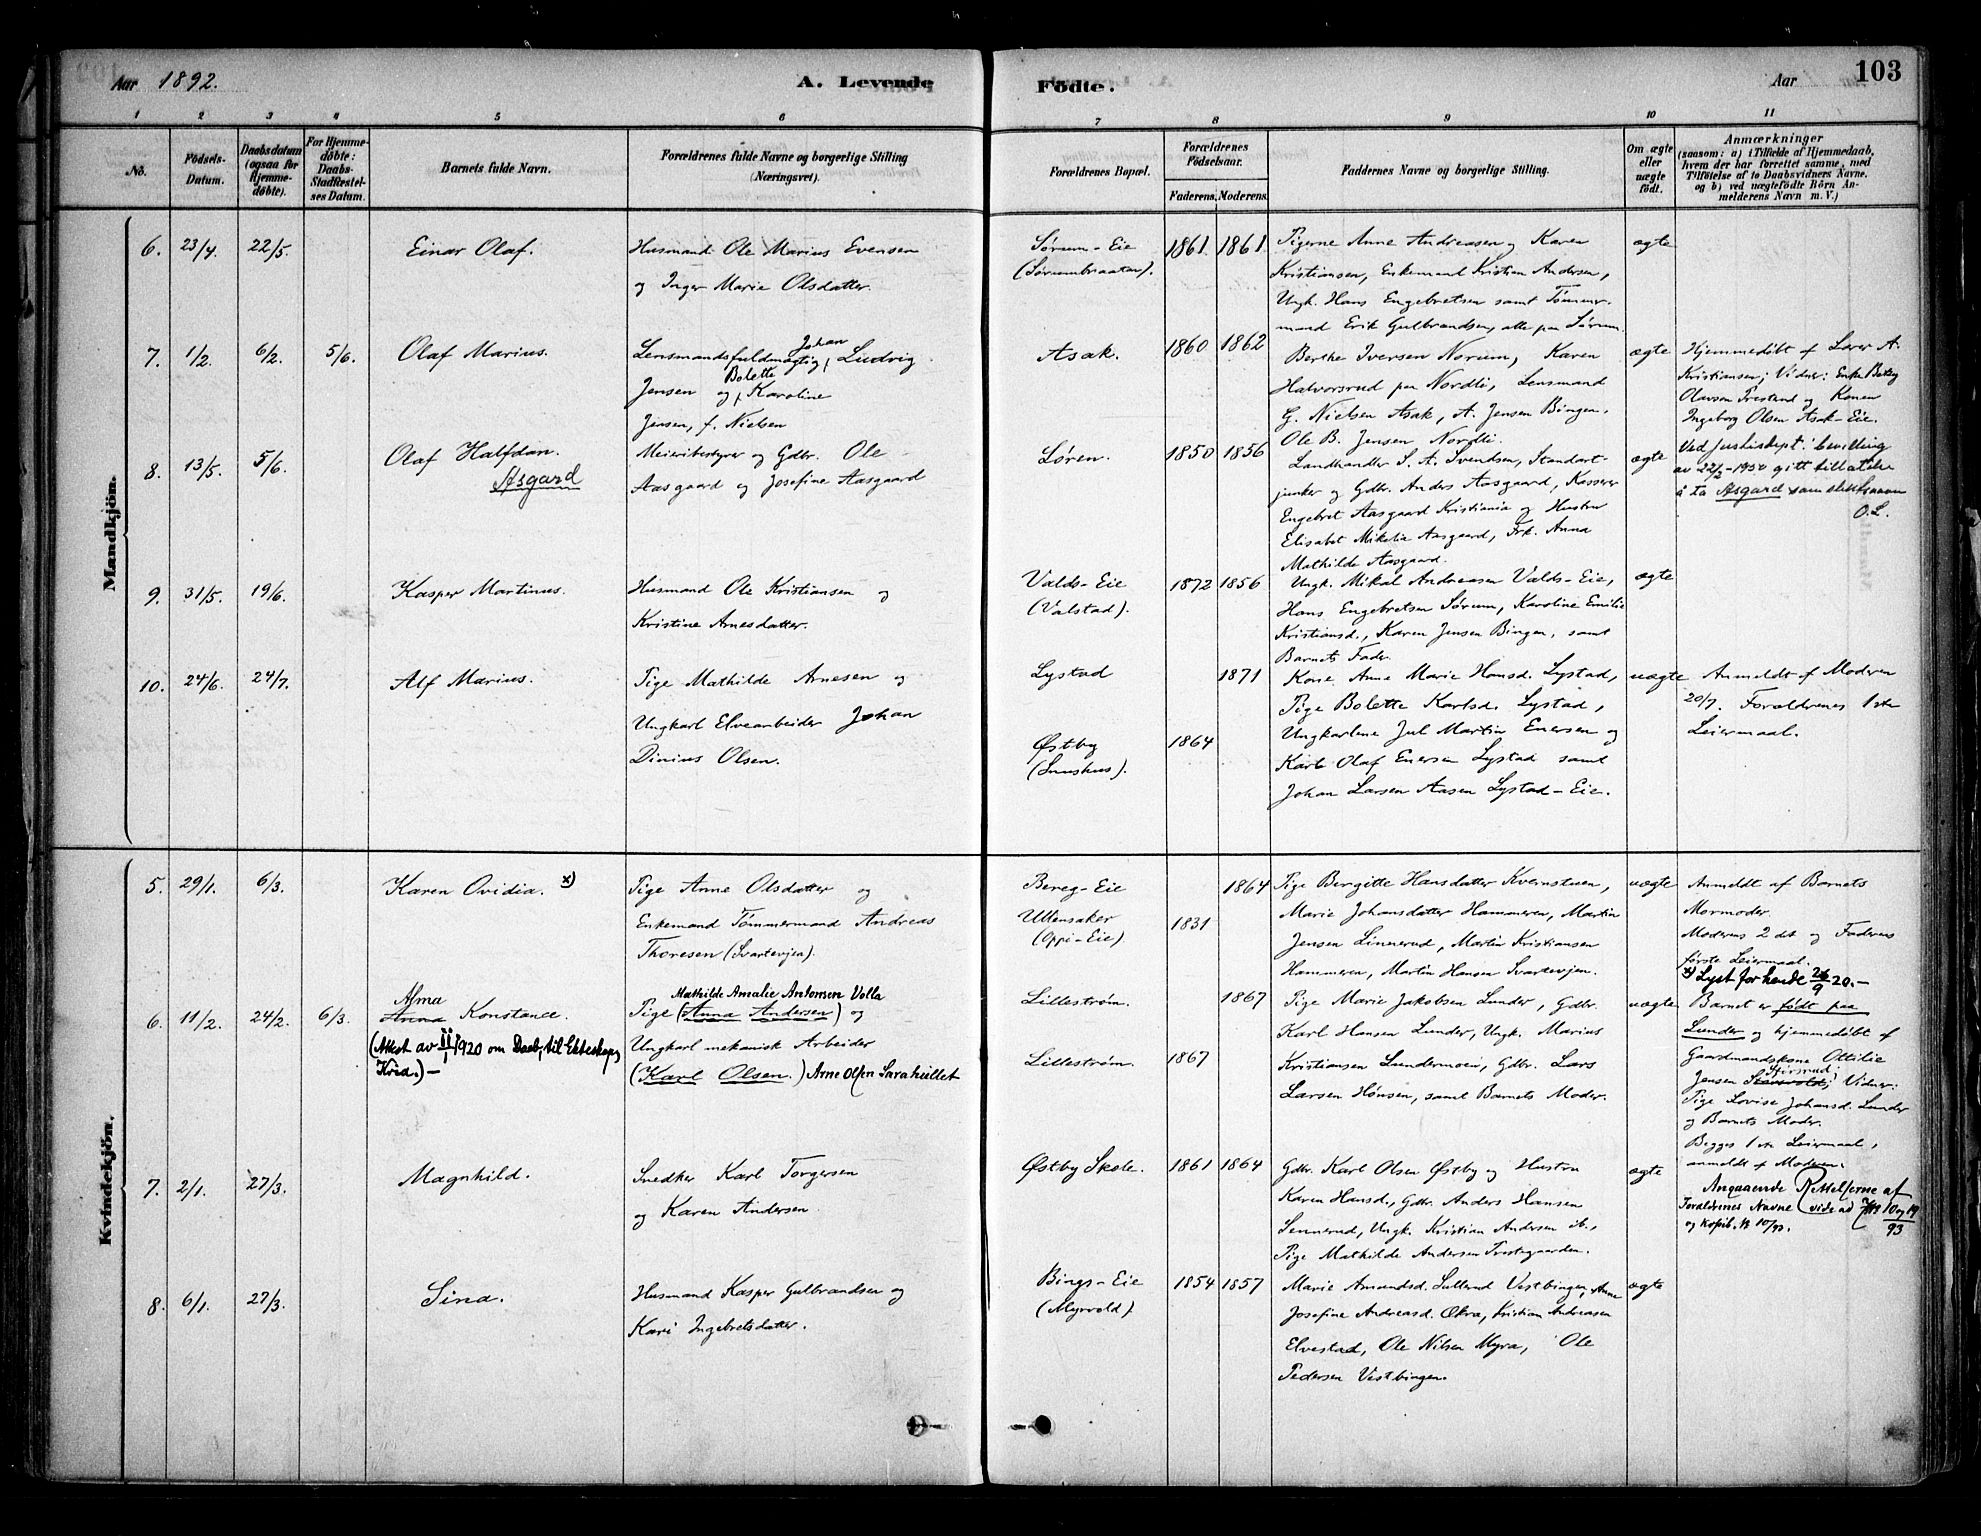 Aar 1892.
A. Levende Födte.
Aar
103
1 2 3 4 5 6 7 8 9 10 11
No.
Födsels-
Datum.
Daabsdatum
(ogsaa for
Hjemme-
döbte).
For Hjemme-
döbte:
Daabs-
Stadfæstel-
ses Datum.
Barnets fulde Navn.
Forældrenes fulde Navne og borgerlige Stilling
(Næringsvei).
Forældrenes Bopæl.
Forældrenes
Födselsaar.
Faderens. Moderens.
Faddernes Navne og borgerlige Stilling.
Om ægte
eller
uægte
födt.
Anmærkninger
(saasom: a) i Tilfælde af Hjemmedaab,
hvem der har forrettet samme, med
Tilföielse af to Daabsvidners Navne,
og b) ved uægtefödte Börn An-
melderens Navn m. V.)
Mandkjön.
6. 23/4. 22/5. Einar Olaf.
Husmand Ole Marius Evensen
og Inger Marie Olsdatter.
Sørum-Eie
(Sørumbraaten).
1861 1861
Pigerne Anne Andreasen og Karen
Kristiansen, Enkemand Kristian Andersen,
Ungk. Hans Engebretsen samt Tømmer-
mand Erik Gulbrandsen, alle paa Sørum.
ægte
7. 1/2. 6/2. 5/6. Olaf Marius.
Johan
Lensmandsfuldmægtig, Ludvig
Bolette
Jensen og, Karoline
Jensen, f. Nielsen
Asak.
1860 1862
Berthe Iversen Norum, Karen
Halvorsrud paa Nordli, Lensmand
G. Nielsen Asak, A. Jensen Bingen,
Ole B. Jensen Nordli.
ægte
Hjemmedøbt af Lærer A.
Kristiansen; Vidner: Enke
Olavson og Konen
Ingeborg Olsen Asak-Eie.
8. 13/5. 5/6. Olaf Halfdan.
Asgard
Meieribestyrer og Gdbr. Ole
Aasgaard og Josefine Aasgaard
Løren.
1850 1856
Landhandler S. A. Svendsen, Standart-
junker og Gdbr. Anders Aasgaard, Kasserer
Engebret Aasgaard Kristiania og Hustru
Elisabet Mikalia Aasgaard, Frk. Anna
Mathilde Aasgaard.
ægte
Ved Justisdept. bevilling
av 22/2-1930 gitt tillatelse
å ta Asgard som slektsnavn
O.L.
9. 31/5. 19/6. Kasper Martinus.
Husmand Ole Kristiansen og
Kristine Arnesdatter.
Valds-Eie
(Valstad).
1872 1856
Ungk. Mikal Andreasen Valds-Eie,
Hans Engebretsen Sørum, Karoline Emilie
Kristiansd., Karen Jensen Bingen, samt
Barnets Fader.
ægte
10. 24/6. 24/7. Alf Marius.
Pige Mathilde Arnesen og
Ungkarl Elvearbeider Johan
Dinius Olsen.
Lystad
1871
Østby
1864
Kone Anne Marie Hansd. Lystad,
Pige Bolette Karlsd. Lystad,
Ungkarlene Jul Martin Enersen og
Karl Olaf Enersen Lystad samt
Johan Larsen Aasen Lystad-Eie.
uægte
Anmeldt af Moderen
20/7. Forældrenes 1ste
Leiermaal.
Kvindekjön.
5. 29/1. 6/3. Karen Ovidia. x)
Pige Anne Olsdatter og
Enkemand Tømmermand Andreas
Thoresen (Svartevjen).
Bereg-Eie
Ullensaker
(Oppi-Eie)
1864
1831
Pige Bergitte Hansdatter Kvernstuen,
Marie Johansdatter Hammeren, Martin
Jensen Linnerud, Martin Kristiansen
Hammeren, Martin Hansen Svartevjen.
uægte
Anmeldt af Barnets
Mormoder.
Moderens 2det og Faderens
første Leiermaal.
x) Lyst for hende 26/9 20.-
6. 11/2. 24/2. 6/3.
Alma
Anna Konstance.
(Attest av 11/1 1920 om Daab, til Ekteskap,
Kria.)-
Mathilde Amalie Antonsen Volla
Pige (Anna Andersen) og
Ungkarl mekanisk Arbeider
(Karl Olsen.) Arne Olsen Sarahullet
Lillestrøm.
Lillestrøm.
1867
1867
Pige Marie Jakobsen Lunder, Gdbr.
Karl Hansen Lunder, Ungk. Marius
Kristiansen Lundermoen, Gdbr. Lars
Larsen Hønsen, samt Barnets Moder.
uægte
Barnet er født paa
Lunder og hjemmedøbt af
Gaardmandskone Ottilie
Jensen Vidner:
Pige Lovise Johansd. Lunder
og Barnets Moder.
Begges 1ste Leiermaal,
anmeldt af Moderen.
Angaaende Rettelserne af
Forældrenes Navne vide ad No 10 og 19
93
7. 2/1. 27/3. Magnhild.
Snedker Karl Torgersen
og Karen Andersen.
Østby Skole.
1861 1864
Gdbr. Karl Olsen Østby og Hustru
Karen Hansd., Gdbr. Anders Hansen
Sennerud, Ungk. Kristian Andersen ib.,
Pige Mathilde Andersen
ægte
8. 6/1. 27/3. Sina.
Husmand Kasper Gulbrandsen og
Kari Ingebretsdatter.
Bings-Eie
(Myrvold).
1854 1857
Marie Amundsd. Vestbingen, Anne
Josefine Andreasd. Økra, Kristian Andreasen
Elvestad, Ole Nilsen Myra, Ole
Pedersen Vestbingen.
ægte